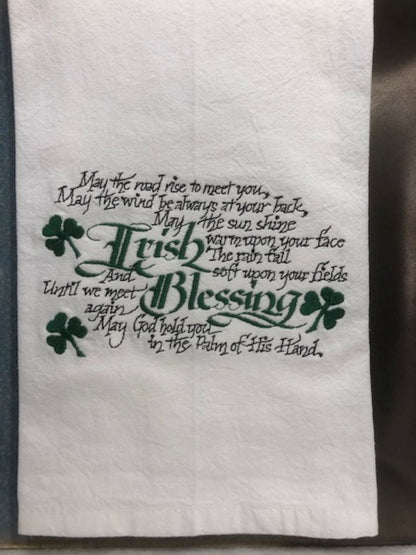 May the road rise to meet you,
May the wind be always at your back,
May the sun shine
Irish warm upon your face
The rain fall
And soft upon your fields
Until we meet Blessing
again
May God hold you
in the Palm of His Hand.